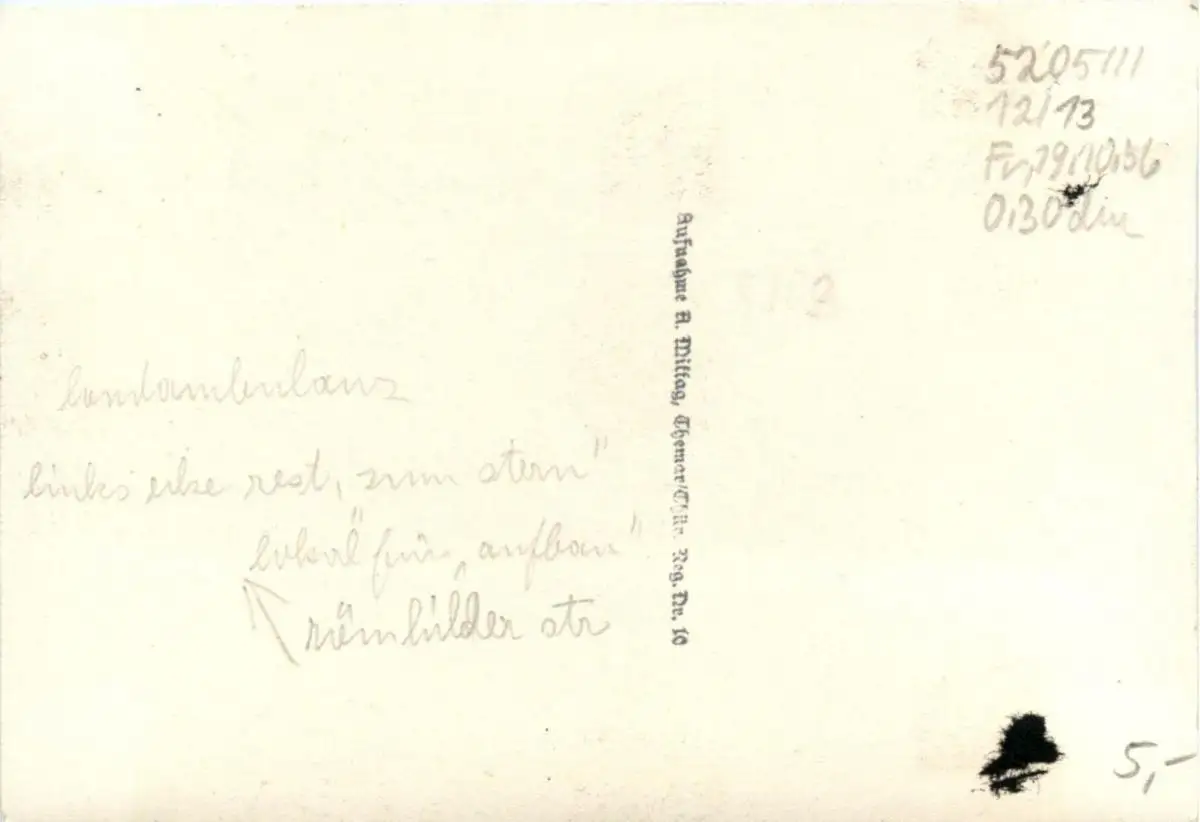 5205111
12/13
Fr, 19,10,56
0,30
landambulanz
links ecke rest. „zum stern"
lokal für „aufbau"
römhilder str
Aufnahme A. Mittag, Themar/Thür. Reg. Nr. 10
5,-